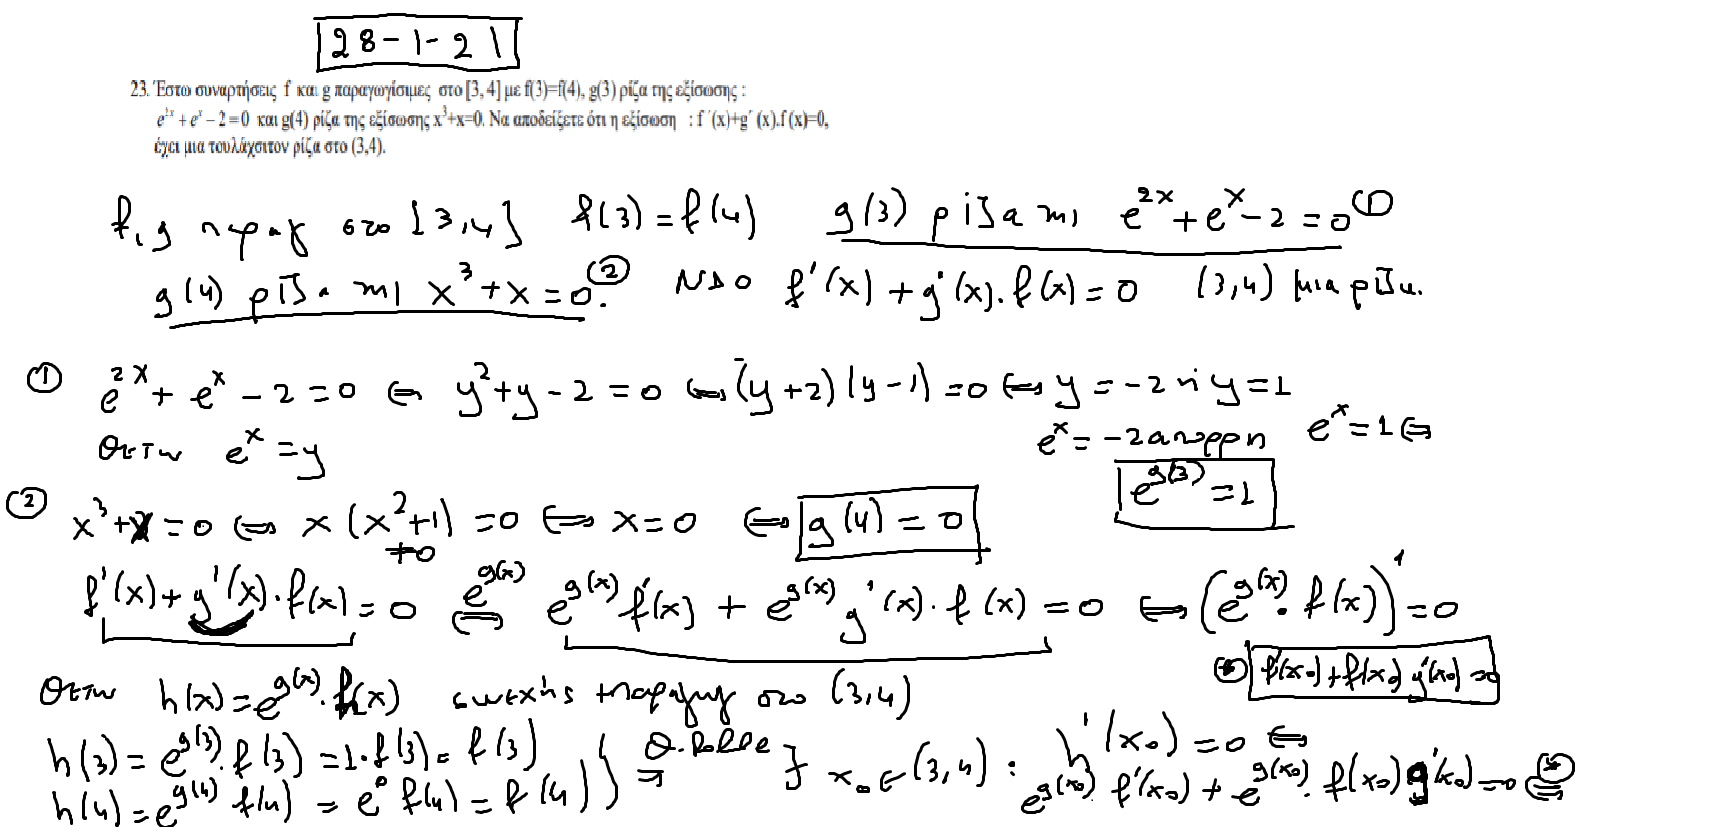 28-1-21
23. Έστω συναρτήσεις f και g παραγωγίσιμες στο [3, 4] με f(3)=f(4), g(3) ρίζα της εξίσωσης :
e^{2x} + e^x – 2 = 0 και g(4) ρίζα της εξίσωσης x³+x=0. Να αποδείξετε ότι η εξίσωση : f ΄(x)+g΄ (x).f (x)=0,
έχει μια τουλάχσιτον ρίζα στο (3,4).
f, g παραγ στο [3,4] f(3) = f(4) g(3) ρίζα της e^{2x} + e^x - 2 = 0 ①
g(4) ρίζα της x³ + x = 0. ② ΝΔΟ f'(x) + g'(x). f(x) = 0 (3,4) μια ρίζα.
① e^{2x} + e^x - 2 = 0 ⇔ y² + y - 2 = 0 ⇔ (y+2)(y-1) = 0 ⇔ y = -2 ή y = 1
Θετω e^x = y e^x = -2 απορρη e^x = 1 ⇔
e^{g(3)} = 1
② x³ + x = 0 ⇔ x (x²+1) = 0 ⇔ x = 0 ⇔ g(4) = 0
≠0
f'(x) + g'(x). f(x) = 0 ⇔ e^{g(x)} e^{g(x)} f'(x) + e^{g(x)} g'(x). f(x) = 0 ⇔ (e^{g(x)}. f(x))' = 0
(*) f'(x₀) + f(x₀) g'(x₀) = 0
Θετω h(x) = e^{g(x)}. f(x) συνεχής +παραγωγ στο (3,4)
h(3) = e^{g(3)}. f(3) = 1. f(3) = f(3)
h(4) = e^{g(4)} f(4) = e⁰ f(4) = f(4) } ⇒ Θ. Rolle ∃ x₀ ∈ (3,4) : h'(x₀) = 0 ⇔
e^{g(x₀)}. f'(x₀) + e^{g(x₀)}. f(x₀) g'(x₀) = 0 ⇔ (*)